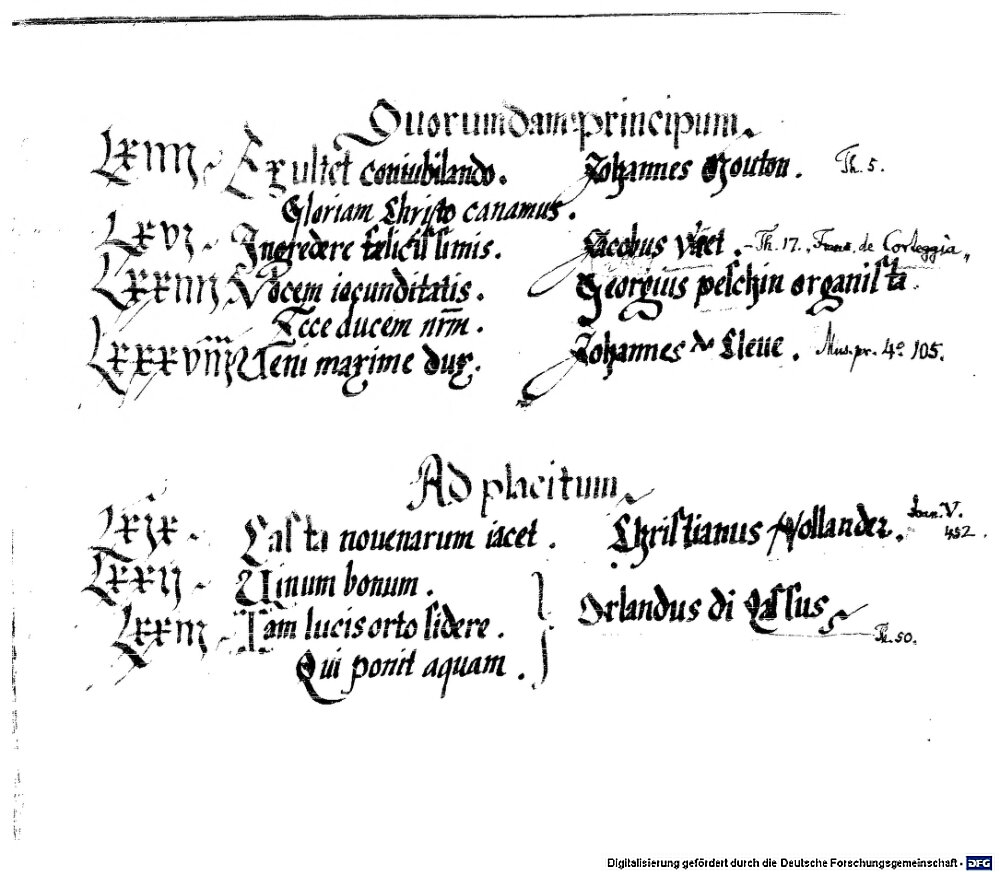 Quorumdam principum
Lxiiij Exultet coniubilando. Johannes Mouton. Th. 5.
Gloriam Christo canamus.
Lxvj Ingredere felicissimis. Jacobus Vaet. - Th. 17., Franc. de Corteggia,
Lxxiiij Vocem iocunditatis. Georgius peschin organista.
Ecce ducem nrm̄.
Lxxxviij Ueni maxime dux. Johannes de Cleue. Mus. pr. 4º 105.
Ad placitum
Lxix Casta nouenarum iacet. Christianus Hollander. Joan. V. 452.
Lxxij Uinum bonum.
Orlandus di Lassus
Lxxiij Iam lucis orto sidere. Th. 50.
Qui ponit aquam.
Digitalisierung gefördert durch die Deutsche Forschungsgemeinschaft - DFG